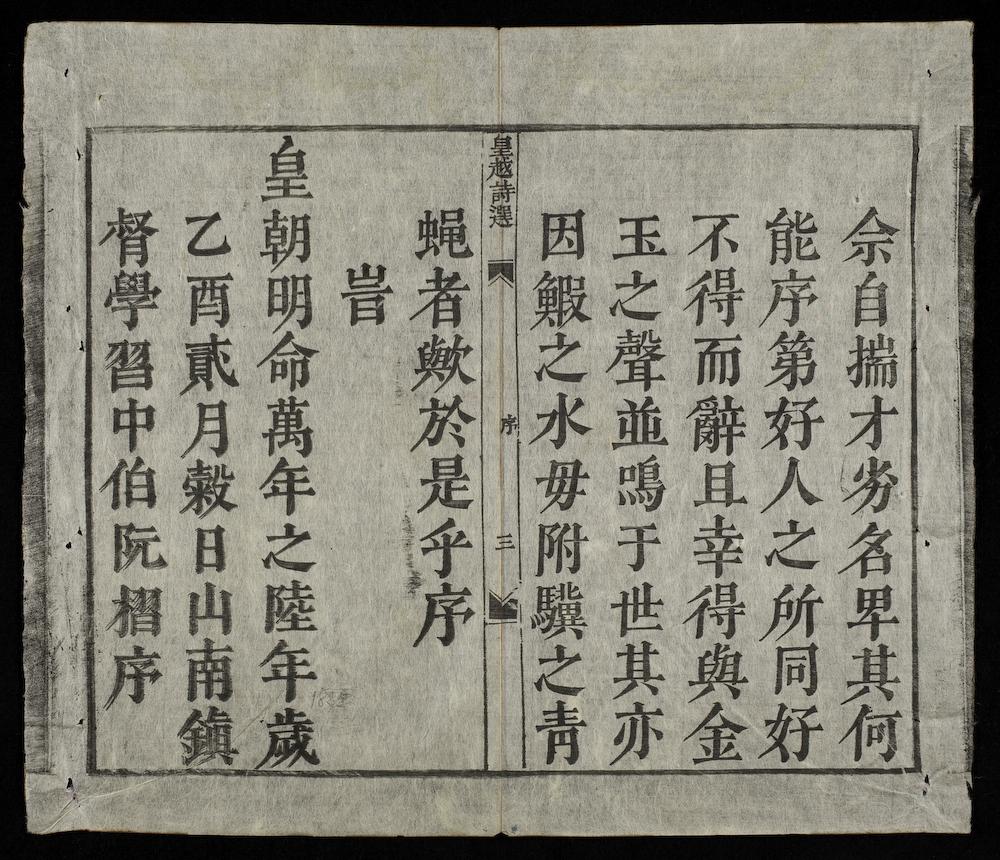 佘自揣才劣名卑其何
能序第好人之所同好
不得而辭且幸得與金
玉之聲並鳴于世其亦
因鰕之水毋附驥之青
皇越詩選
序
三
蝇者歟於是乎序
旹
皇朝明命萬年之陸年歲
乙酉貳月糓日山南鎮
督學習中伯阮摺序